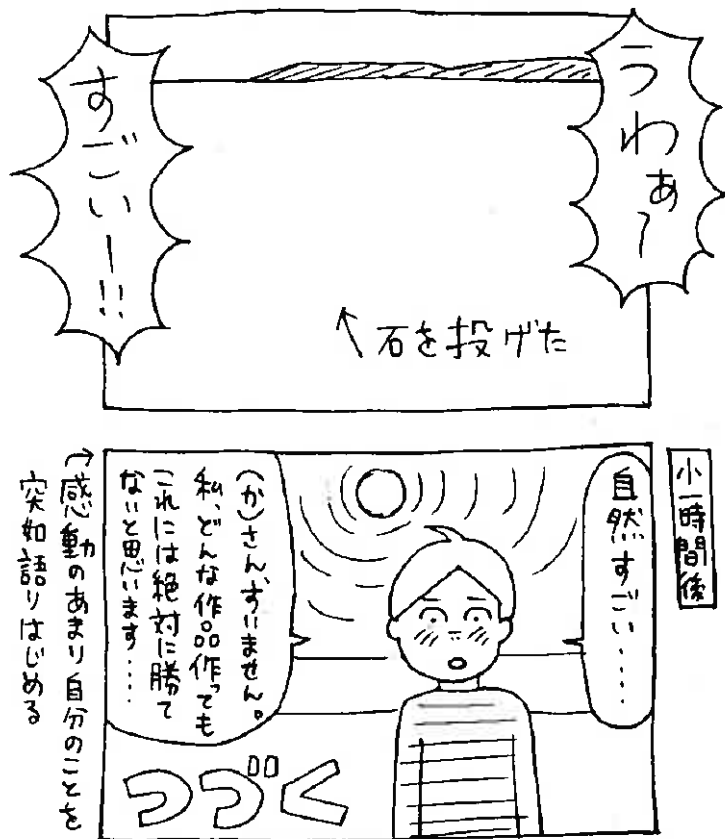 うわぁ〜
すごいー!!
↖石を投げた
小一時間後
自然すごい....
(か)さん、すいません。
私、どんな作品作っても
これには絶対に勝て
ないと思います....
→感動のあまり自分のことを
突如語りはじめる
つづく